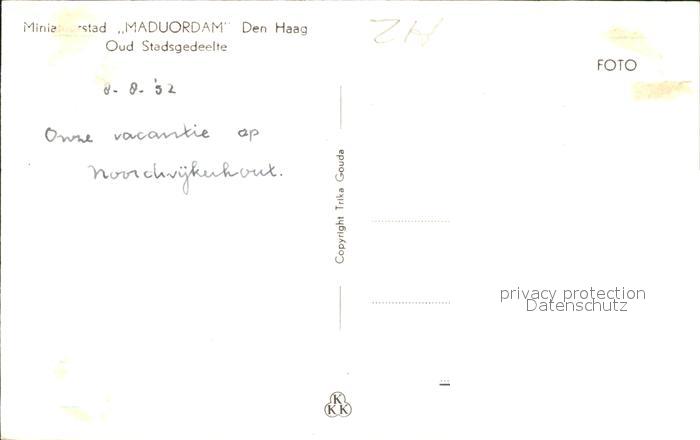 Miniatuurstad „MADUORDAM" Den Haag
Oud Stadsgedeelte
ZH
FOTO
8-8-'52
Onze vacantie op
Noordwijkerhout.
Copyright Trika Gouda
privacy protection
Datenschutz
K
K K